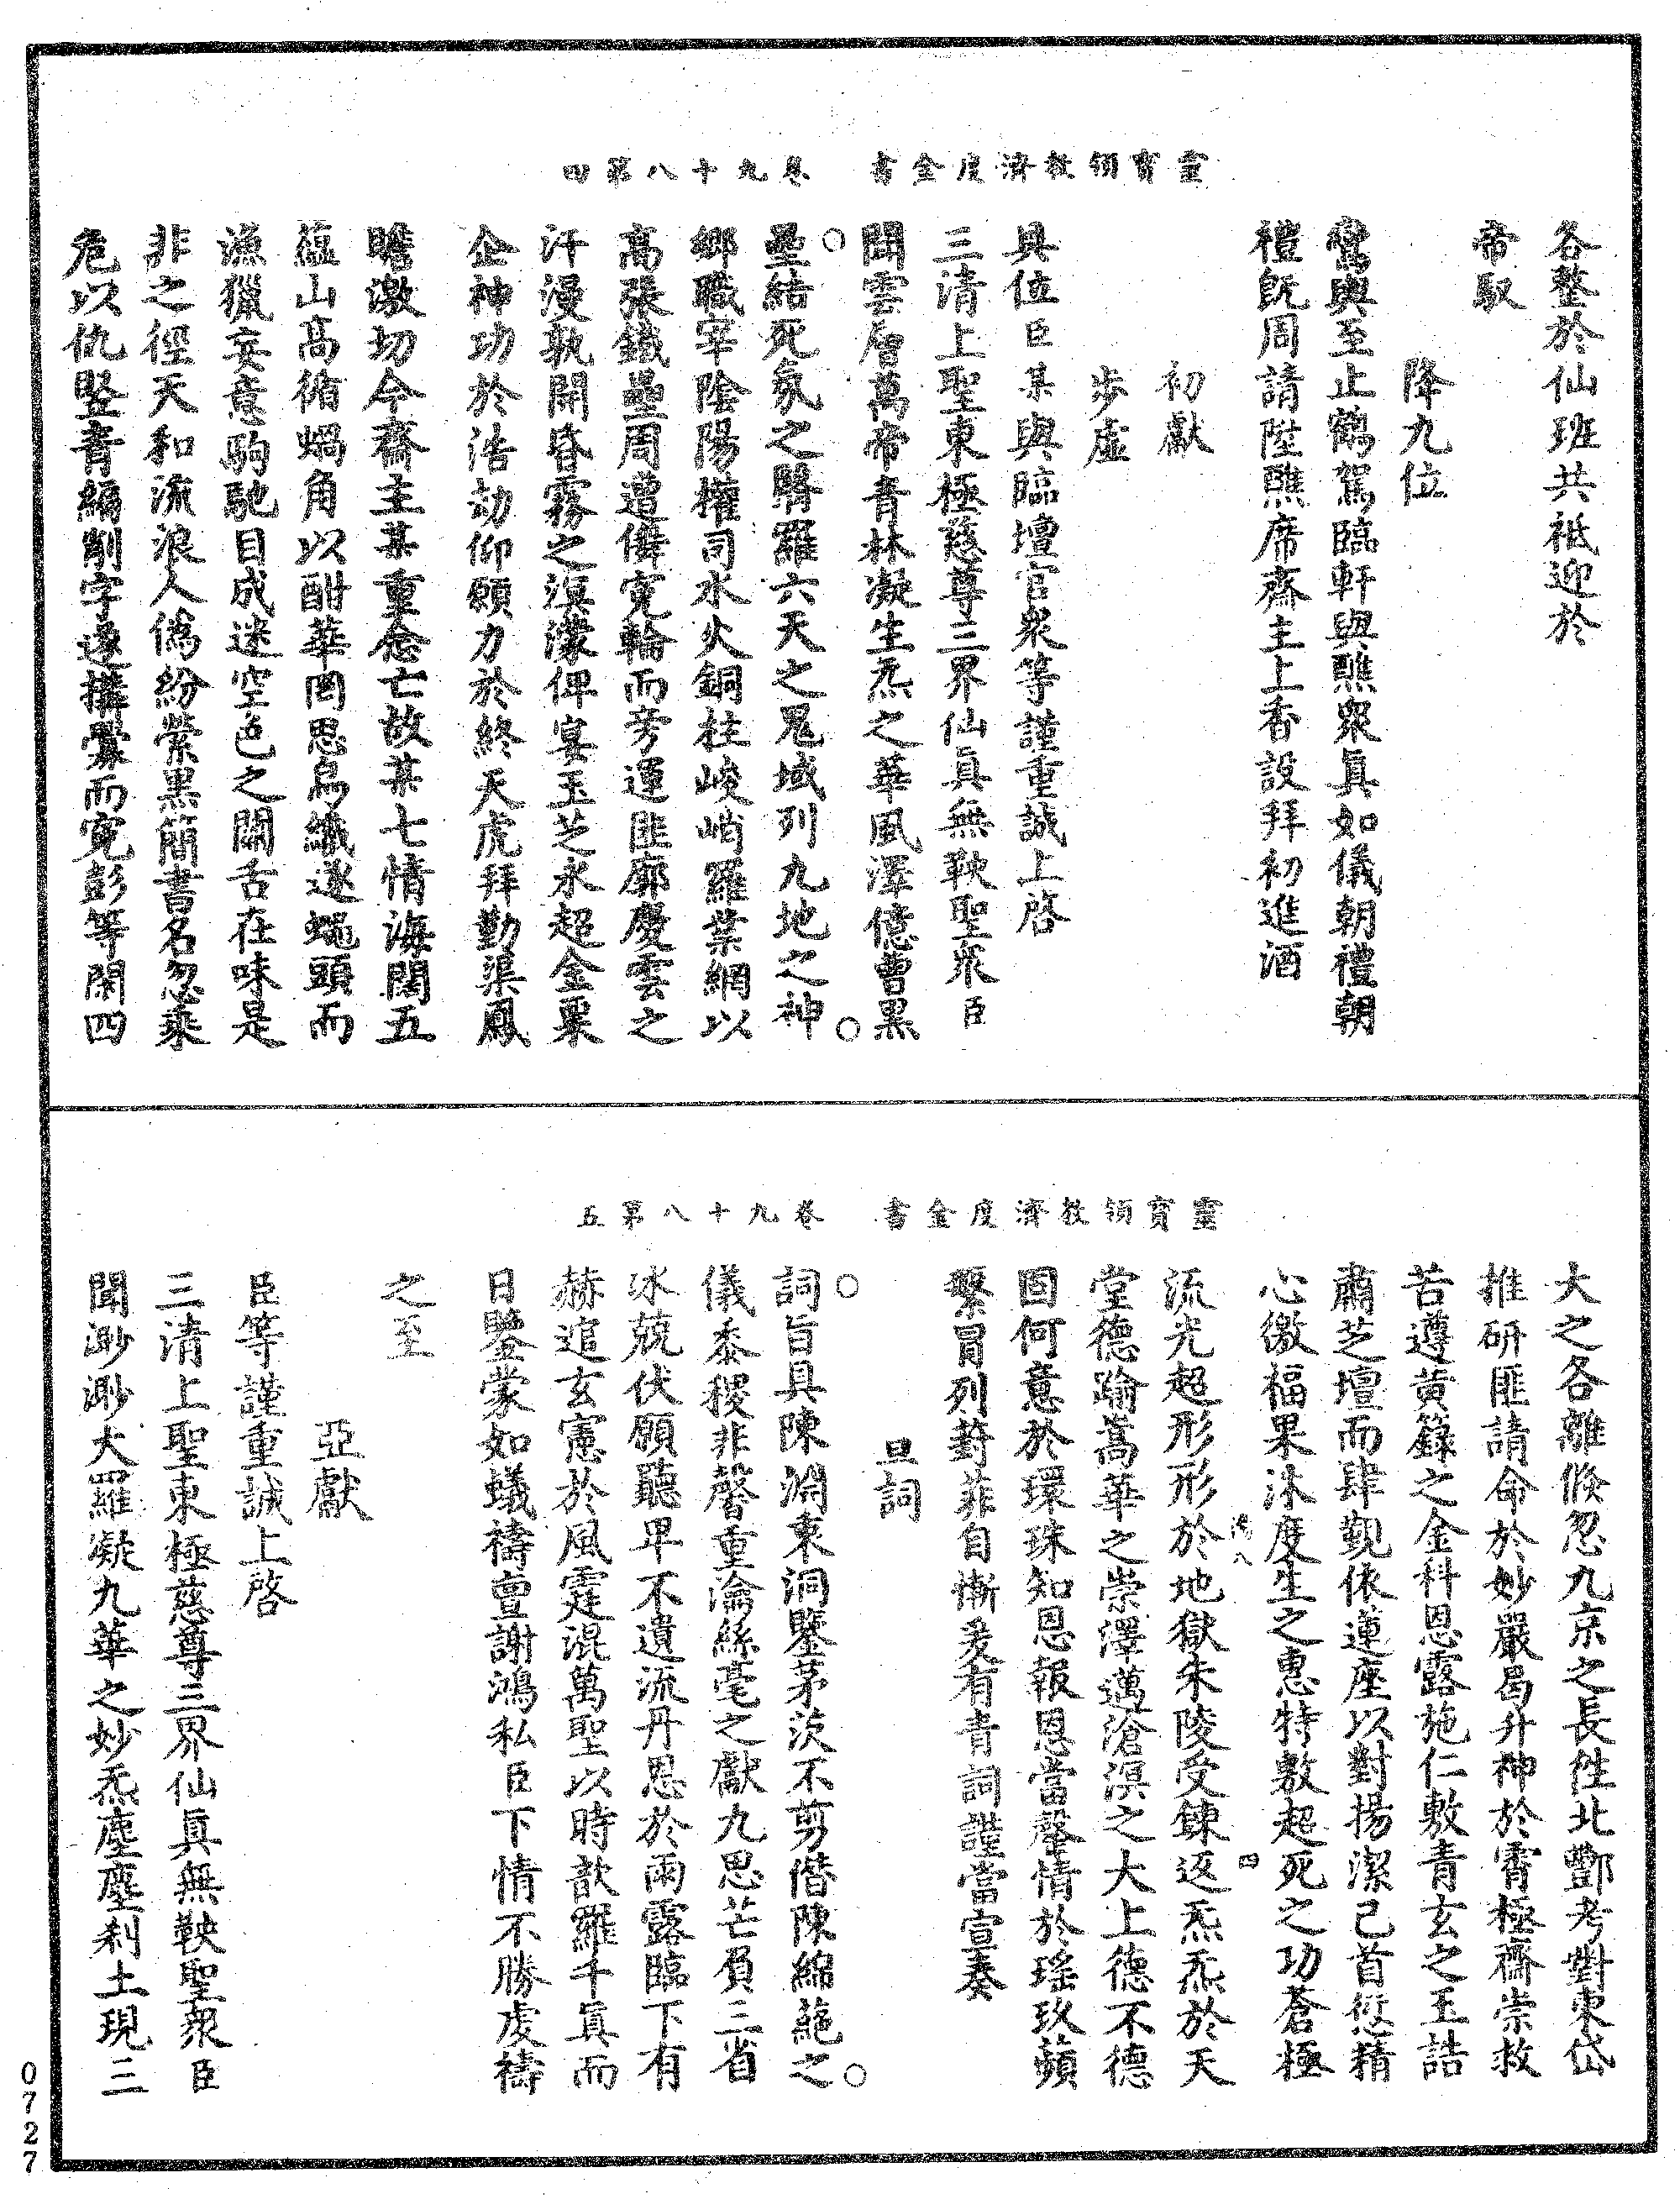 靈寶領教濟度金書　卷九十八第四
各整於仙班共祗迎於
帝馭
降九位
鸞輿至止鶴駕臨軒與醮眾真如儀朝禮朝
禮既周請陞醮席齋主上香設拜初進酒
初獻
步虛
具位臣某與臨壇官眾等謹重誠上啓
三清上聖東極慈尊三界仙真無鞅聖眾臣
聞雲層萬帝青林凝生炁之華風澤億曹黑
壘結死氛之翳羅六天之鬼域列九地之神
鄉職宰陰陽權司水火銅柱峻峭羅業網以
高張鐵壘周遭儛寃輪而旁運匪廓慶雲之
汗漫孰開昏霧之溟濛俾宴玉芝永超金果
企神功於浩劫仰願力於終天虎拜勤渠鳳
瞻激切今齋主某重念亡故某七情海闊五
蘊山高徇蝸角以酣華罔思烏纖逐蠅頭而
漁獵妄意駒馳目成迷空色之關舌在味是
非之徑天和流浪人僞紛縈黑簡書名忽乘
危以仇豎青編削字遂搆釁而寃彭等閑四
靈寶領教濟度金書　卷九十八第五
大之各離倏忽九京之長徃北酆考對東岱
推研匪請命於妙嚴曷升神於霄極齋崇救
苦遵黃籙之金科恩露施仁敷青玄之玉誥
肅芝壇而肆覲依蓮座以對揚潔己首愆精
心徼福果沐度生之惠特敷超死之功蒼極
流光超形形於地獄朱陵受鍊返炁炁於天
堂德踰嵩華之崇澤邁滄溟之大上德不德
固何意於環珠知恩報恩當罄情於瑤玫蘋
蘩冒列葑菲自慚爰有青詞謹當宣奏
旦詞
詞旨具陳淵衷洞鑒茅茨不剪僭陳綿蕝之
儀黍稷非馨重瀹絲毫之獻九思芒負三省
冰兢伏願聽卑不遺流丹恩於雨露臨下有
赫追玄憲於風霆混萬聖以時歆羅千真而
日鑒蒙如蟻禱亶謝鴻私臣下情不勝虔禱
之至
亞獻
臣等謹重誠上啓
三清上聖東極慈尊三界仙真無鞅聖眾臣
聞渺渺大羅凝九華之妙炁塵塵刹土現三
四
0727